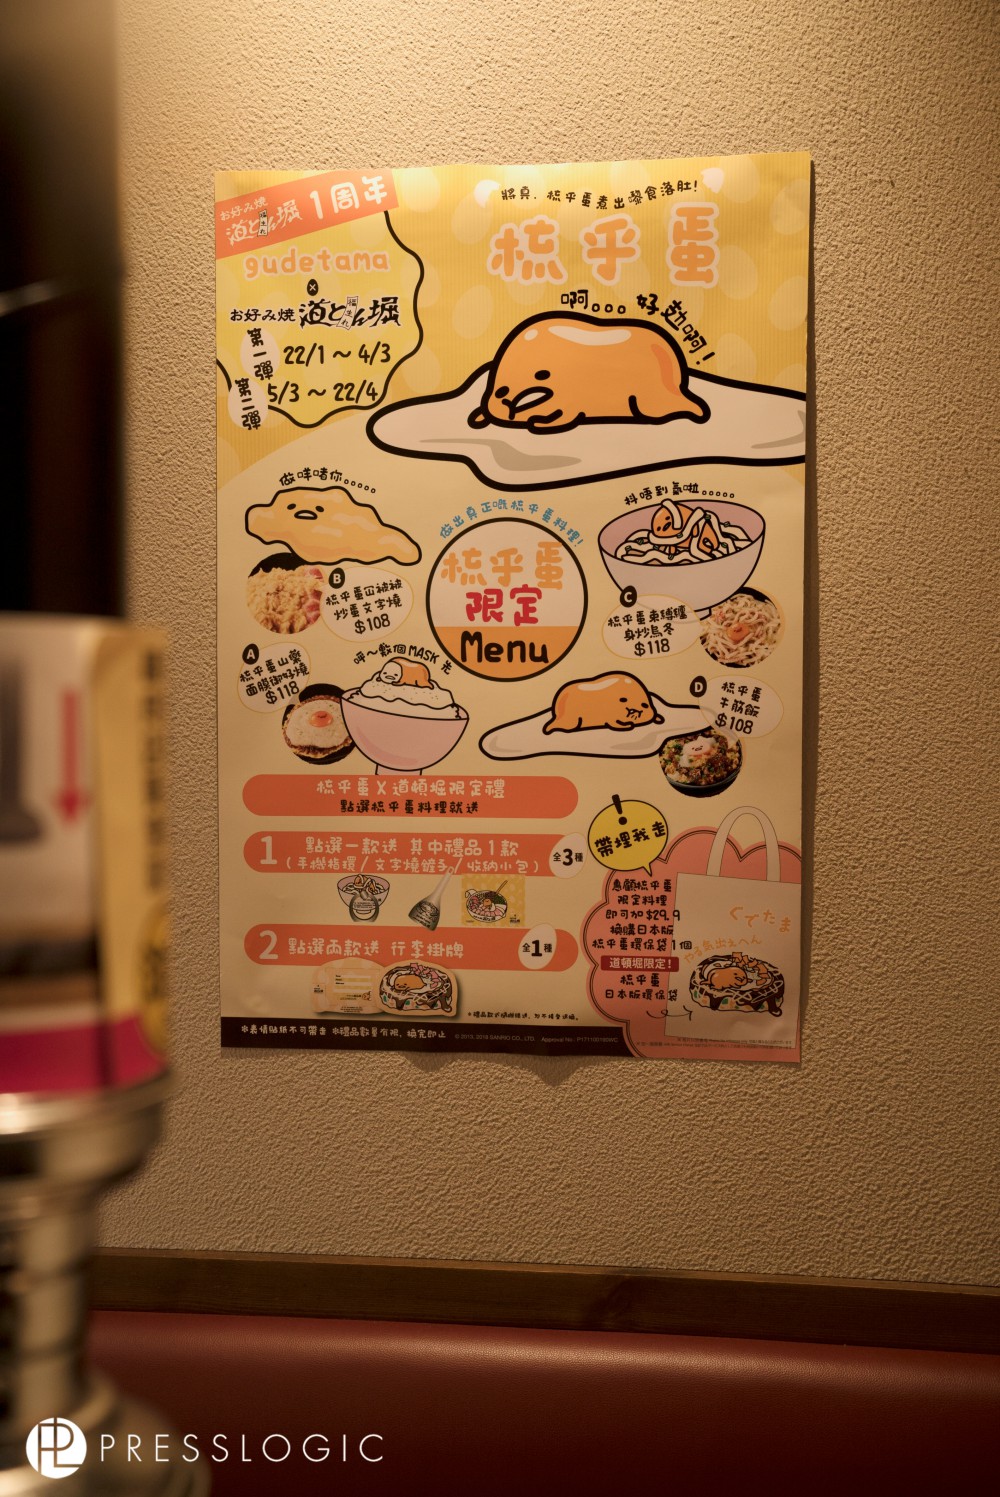 お好み焼
道とん堀 1周年
gudetama
×
お好み焼 道とん堀
第一彈 22/1 ～ 4/3
第二彈 5/3 ～ 22/4
將真．梳乎蛋煮出嚟食落肚!
梳乎蛋
啊。。。好攰啊!
做咩啫你。。。。。
B
梳乎蛋冚被被
炒蛋文字燒
$108
做出真正嘅梳乎蛋料理!
梳乎蛋
限定
Menu
抖唔到氣啦。。。。。
C
梳乎蛋束縛纏
身炒烏冬
$118
A
梳乎蛋山藥
面膜御好燒
$118
呼～敷個MASK先
D
梳乎蛋
牛筋飯
$108
梳乎蛋 X 道頓堀限定禮
點選梳乎蛋料理就送
1 點選一款送 其中禮品1款
(手機指環／文字燒鏟子／收納小包)
全3種
2 點選兩款送 行李掛牌
全1種
!
帶埋我走
惠顧梳乎蛋
限定料理
即可加$29.9
換購日本版
梳乎蛋環保袋1個
道頓堀限定!
梳乎蛋
日本版環保袋
ぐでたま
＊禮品款式隨機派送，恕不接受選換。
※表情貼紙不可帶走 ※禮品數量有限，換完即止
PL PRESSLOGIC